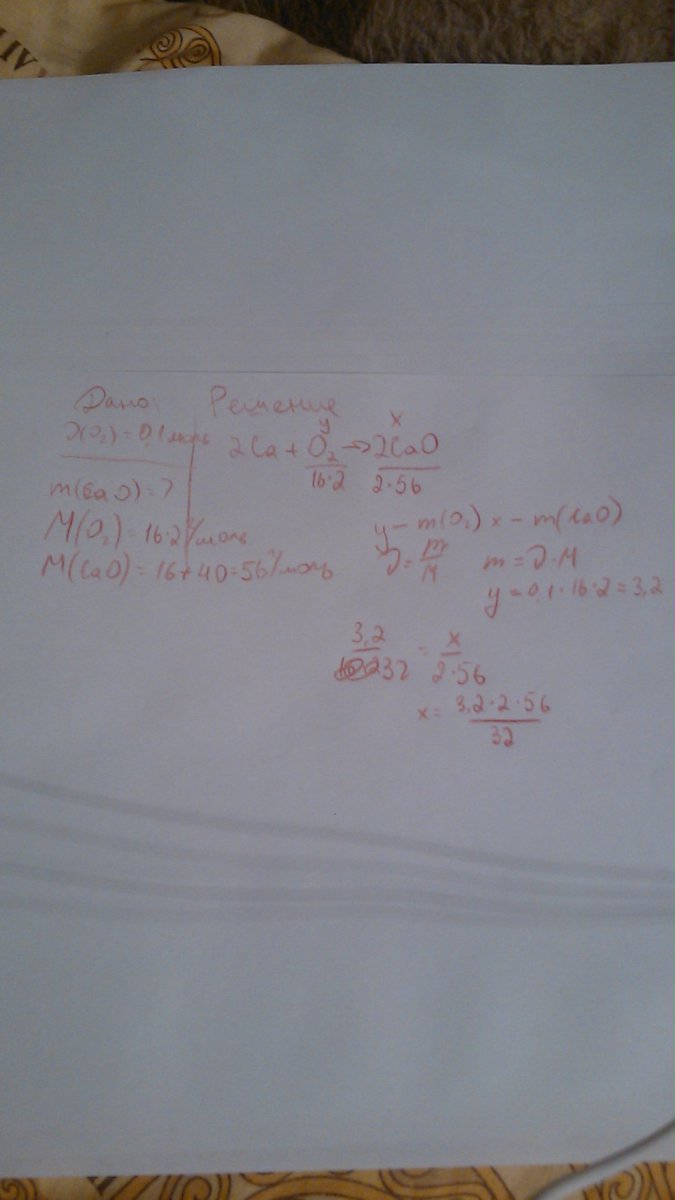 Дано:
ν(O₂) = 0,1 моль
m(CaO) = ?
M(O₂) = 16·2 г/моль
M(CaO) = 16+40=56 г/моль
Решение
y x
2Ca + O₂ → 2CaO
16·2 2·56
y – m(O₂) x – m(CaO)
ν = m/M m = ν·M
y = 0,1·16·2 = 3,2
3,2/32 = x/2·56
x = 3,2·2·56/32